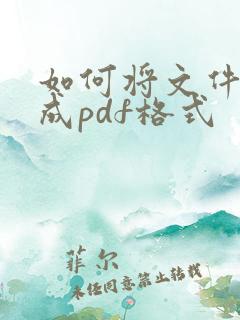 如何将文件
成pdf格式
菲尔
未经同意禁止转载